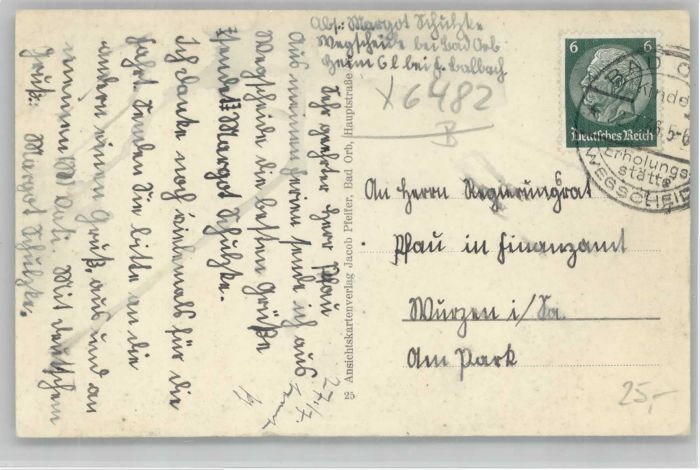 Abs.: Margot Schulzke
Wegscheide bei Bad Orb
Heim 6 L bei F. Balbach
X6482
B
Sehr geehrter Herr Pfau
Aus meinen Ferien sende ich aus
Wegscheide die besten Grüße
Margot Schulzke.
Ich danke noch vielmals für die
Fahrt. Senden Sie bitte an die
andern einen Gruß aus und an
meinen Mit deutschem
Gruß: Margot Schulzke.
27/7.
25 Ansichtskartenverlag Jacob Pfeifer, Bad Orb, Hauptstraße
6 6
Deutsches Reich
BAD ORB
Kinder
Erholungs
stätte
WEGSCHEIDE
An Herrn Regierungsrat
Pfau in Finanzamt
Wurzen i/Sa.
Am Park
25,-